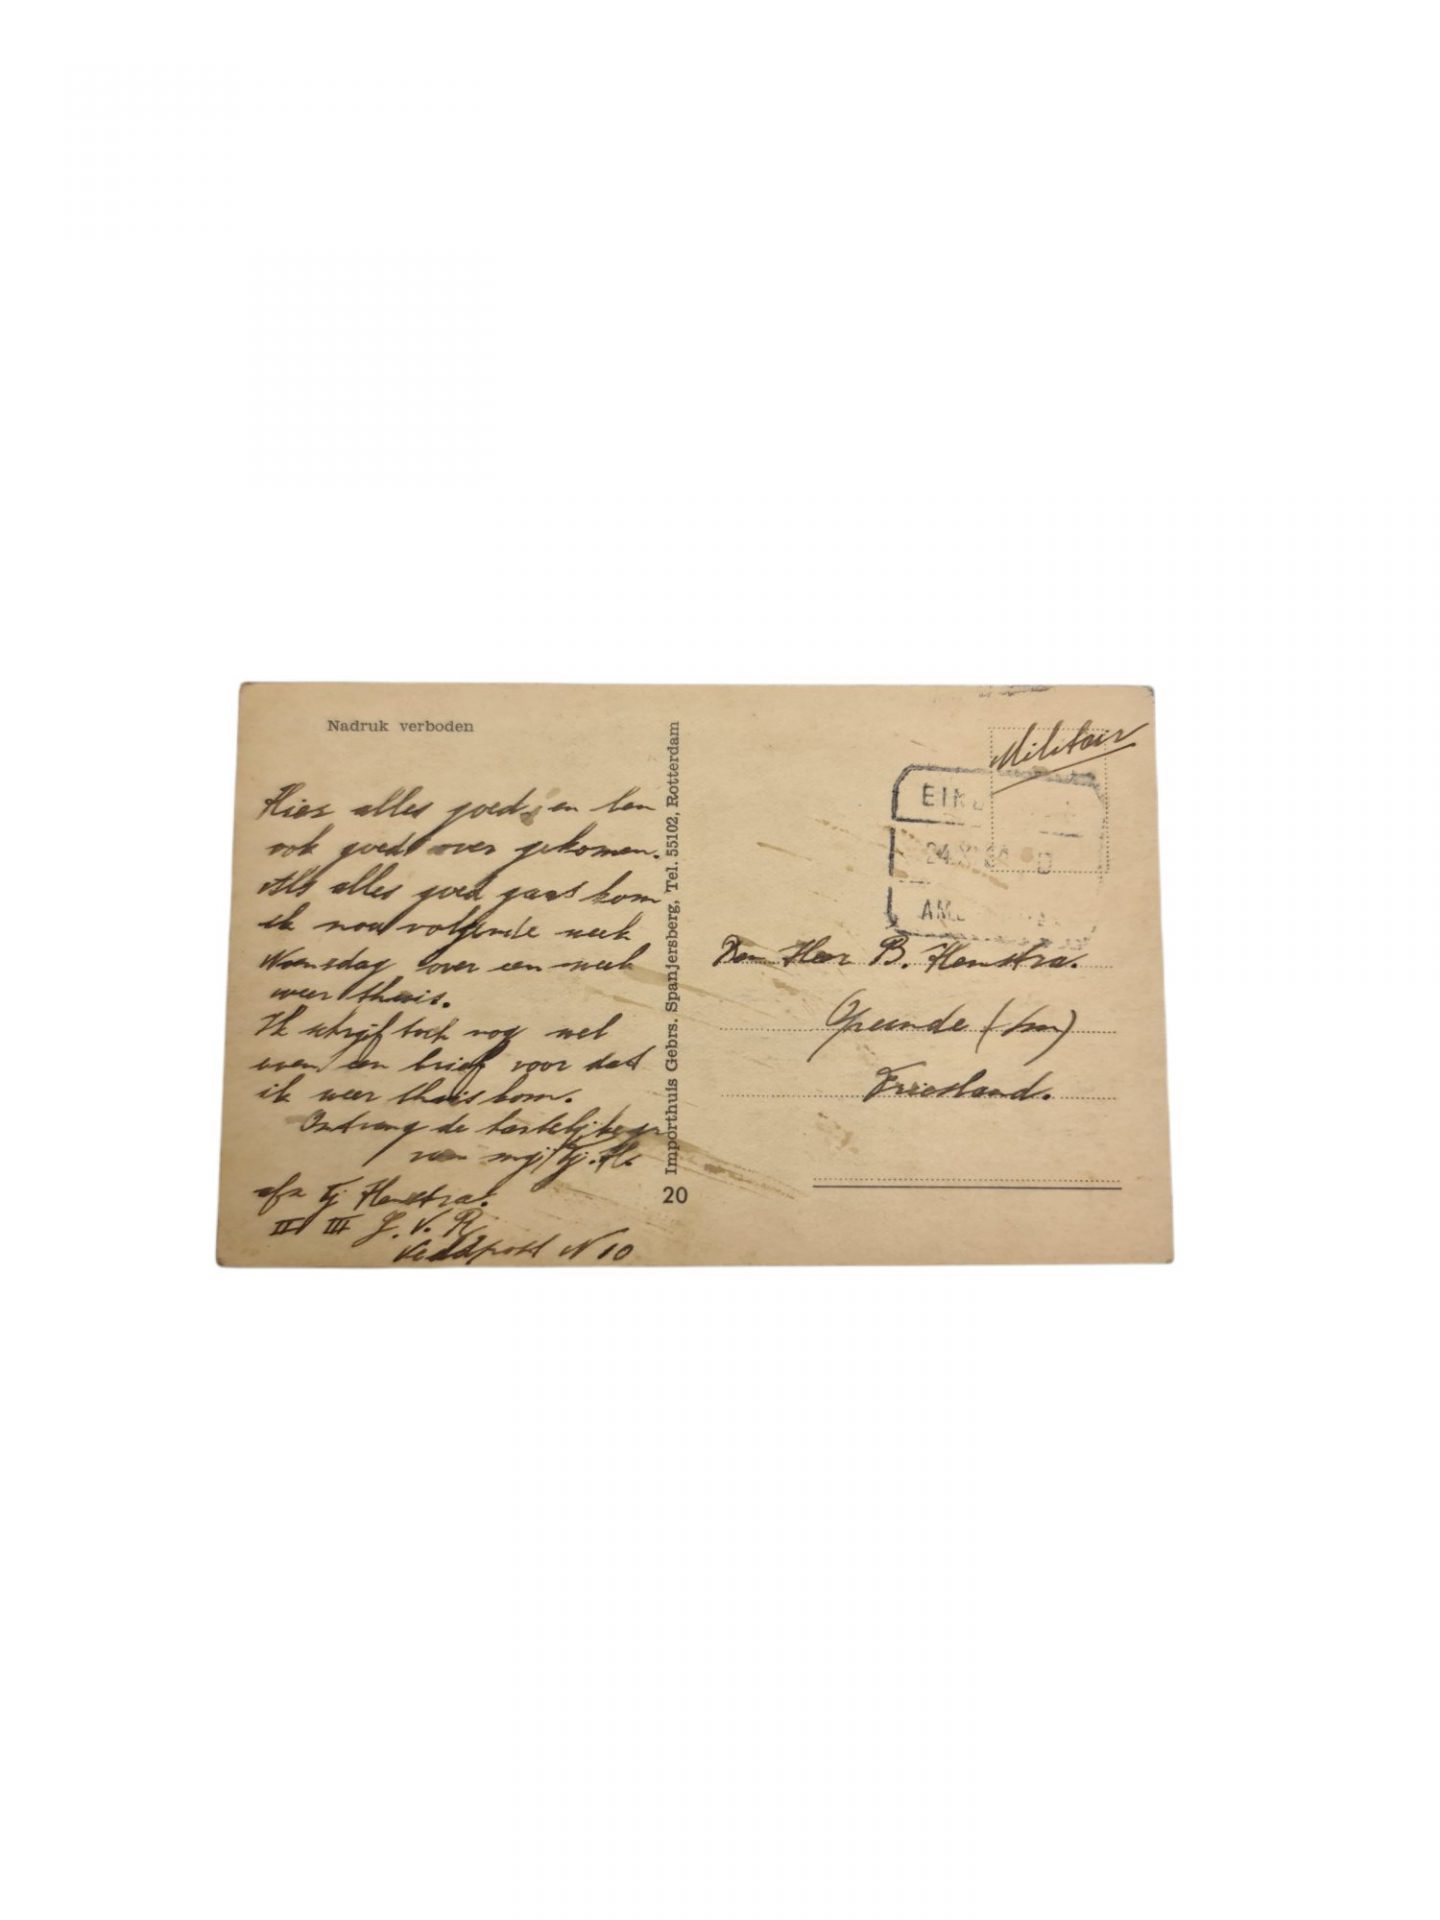 Nadruk verboden
Hier alles goed, en ben
ook goed over gekomen.
Als alles goed gaat kom
ik nou volgende week
Woensdag over een week
weer thuis.
Ik schrijf toch nog wel
even een brief voor dat
ik weer thuis kom.
Ontvang de hartelijke gr
van mij Tj. H.
afz Tj Henstra.
II III G. V. R
Veldpost N 10
Importhuis Gebrs. Spanjersberg, Tel. 55102, Rotterdam
20
Militair
24
D
Den Heer B. Henstra.
Friesland.